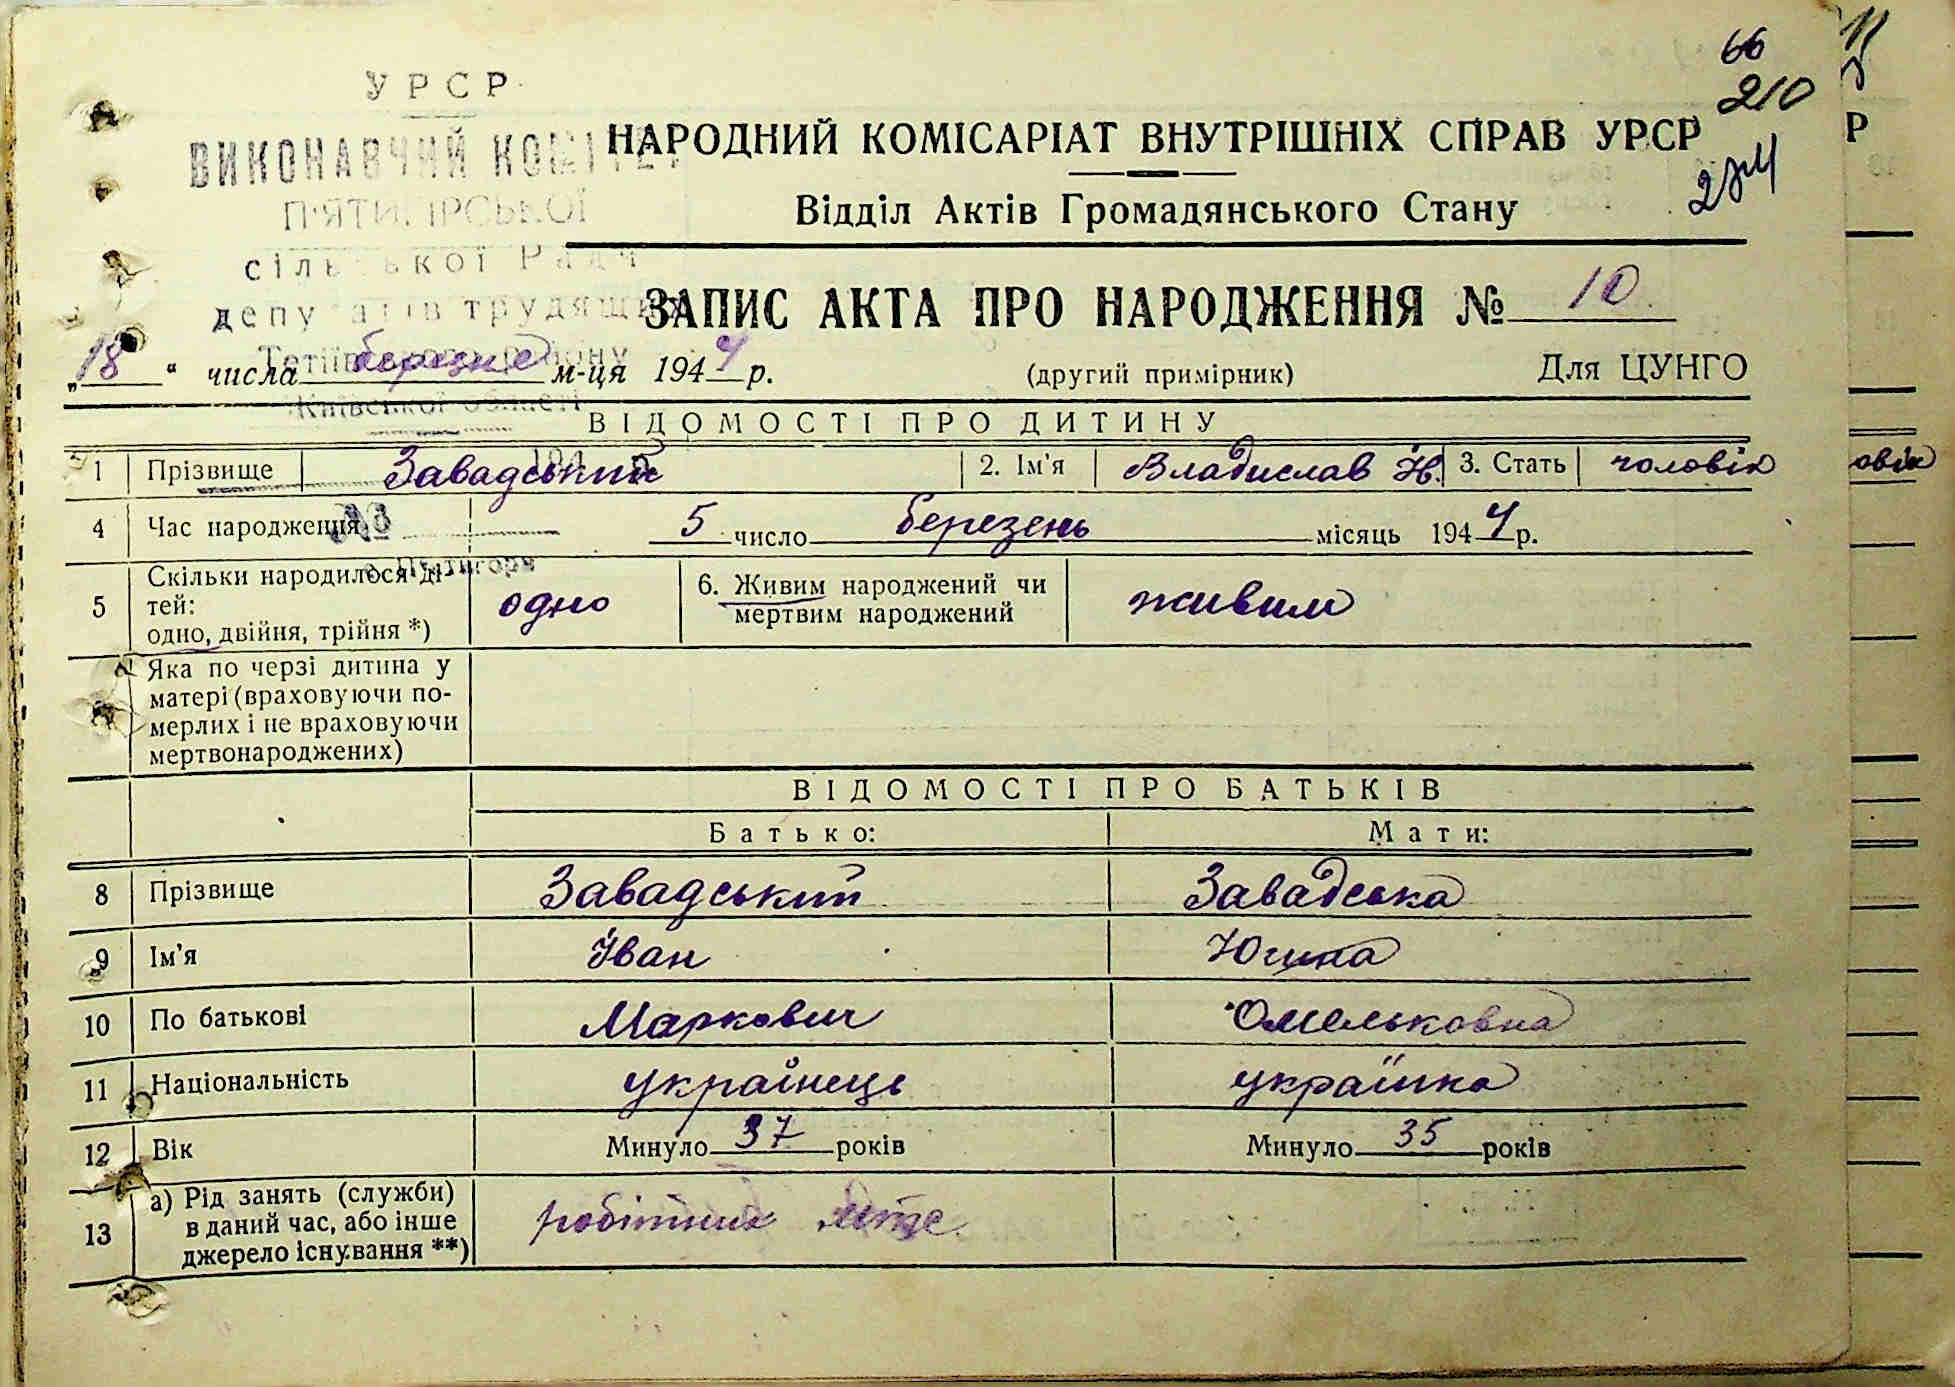 66
210
УРСР
ВИКОНАВЧИЙ КОМІТЕТ
П'ЯТИГІРСЬКОЇ
сільської Ради
депутатів трудящих
Тетіївського району
Київської області
194 р.
№
с. П'ятигори
НАРОДНИЙ КОМІСАРІАТ ВНУТРІШНІХ СПРАВ УРСР
Відділ Актів Громадянського Стану
ЗАПИС АКТА ПРО НАРОДЖЕННЯ № 10
„18“ числа березне м-ця 1944 р. (другий примірник) Для ЦУНГО
ВІДОМОСТІ ПРО ДИТИНУ
1 Прізвище Завадський 2. Ім'я Владислав Й. 3. Стать чоловік
4 Час народження 5 число березень місяць 1944 р.
5 Скільки народилося ді-
тей:
одно, двійня, трійня *) одно 6. Живим народжений чи
мертвим народжений живим
Яка по черзі дитина у
матері (враховуючи по-
мерлих і не враховуючи
мертвонароджених)
ВІДОМОСТІ ПРО БАТЬКІВ
Батько: Мати:
8 Прізвище Завадський Завадська
9 Ім'я Іван Югина
10 По батькові Маркович Омельковна
11 Національність українець украінка
12 Вік Минуло 37 років Минуло 35 років
13 а) Рід занять (служби)
в даний час, або інше
джерело існування **) робітник мтс